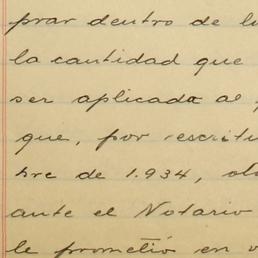 prar dentro de l
la cantidad que
ser aplicada al
que, por escritu
bre de 1.934, o
ante el Notario
le prometió en